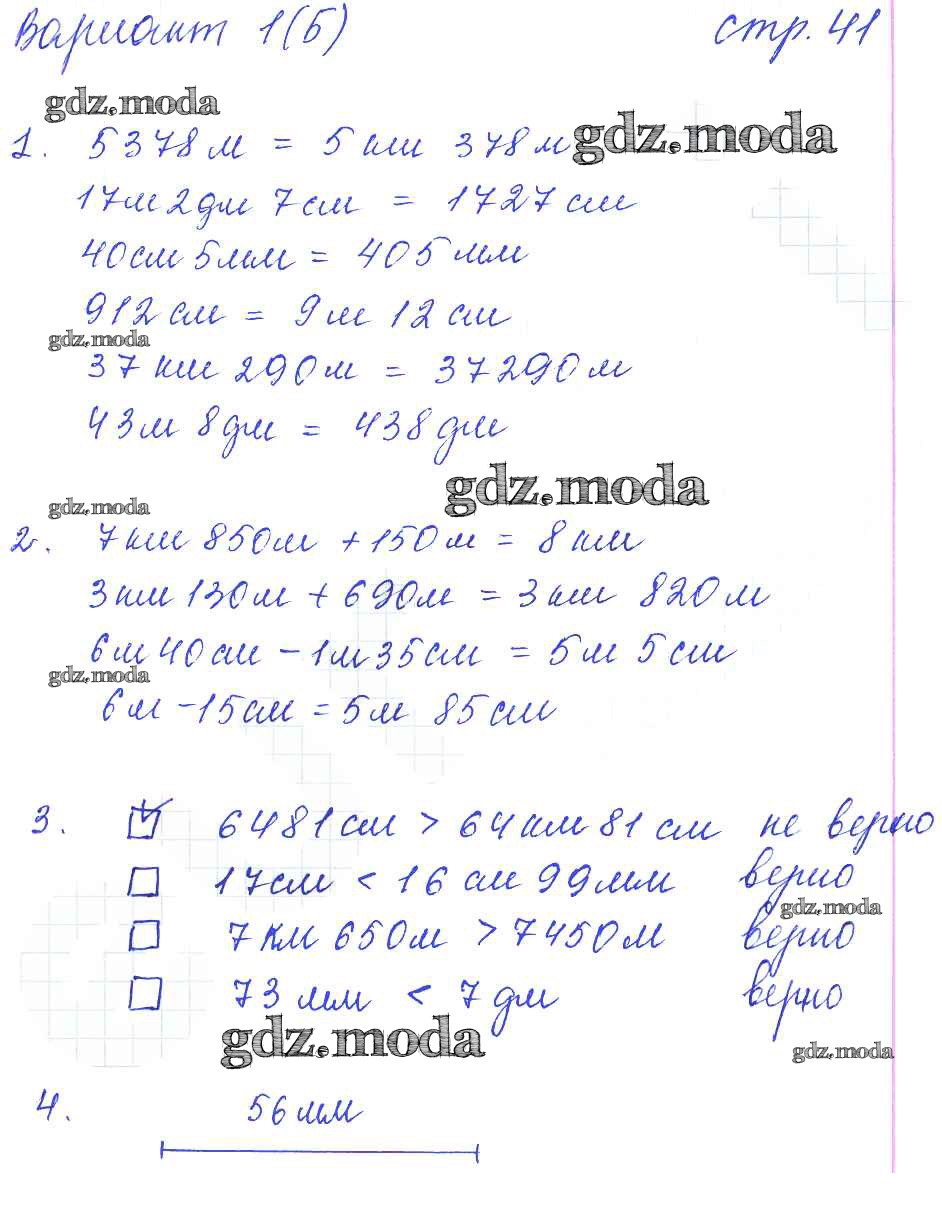 Вариант 1(б) стр. 41
gdz.moda
1. 5378м = 5 км 378м gdz.moda
17м 2дм 7см = 1727см
40см 5мм = 405мм
912см = 9м 12см
gdz.moda
37 км 290м = 37290м
43м 8дм = 438дм
gdz.moda
gdz.moda
2. 7км 850м + 150м = 8км
3км 130м + 690м = 3км 820м
6м 40см - 1м 35см = 5м 5см
gdz.moda
6м - 15см = 5м 85см
3. 6481см > 64км 81см не верно
17см < 16см 99мм верно
gdz.moda
7км 650м > 7450м верно
73 мм < 7 дм верно
gdz.moda
gdz.moda
4. 56мм